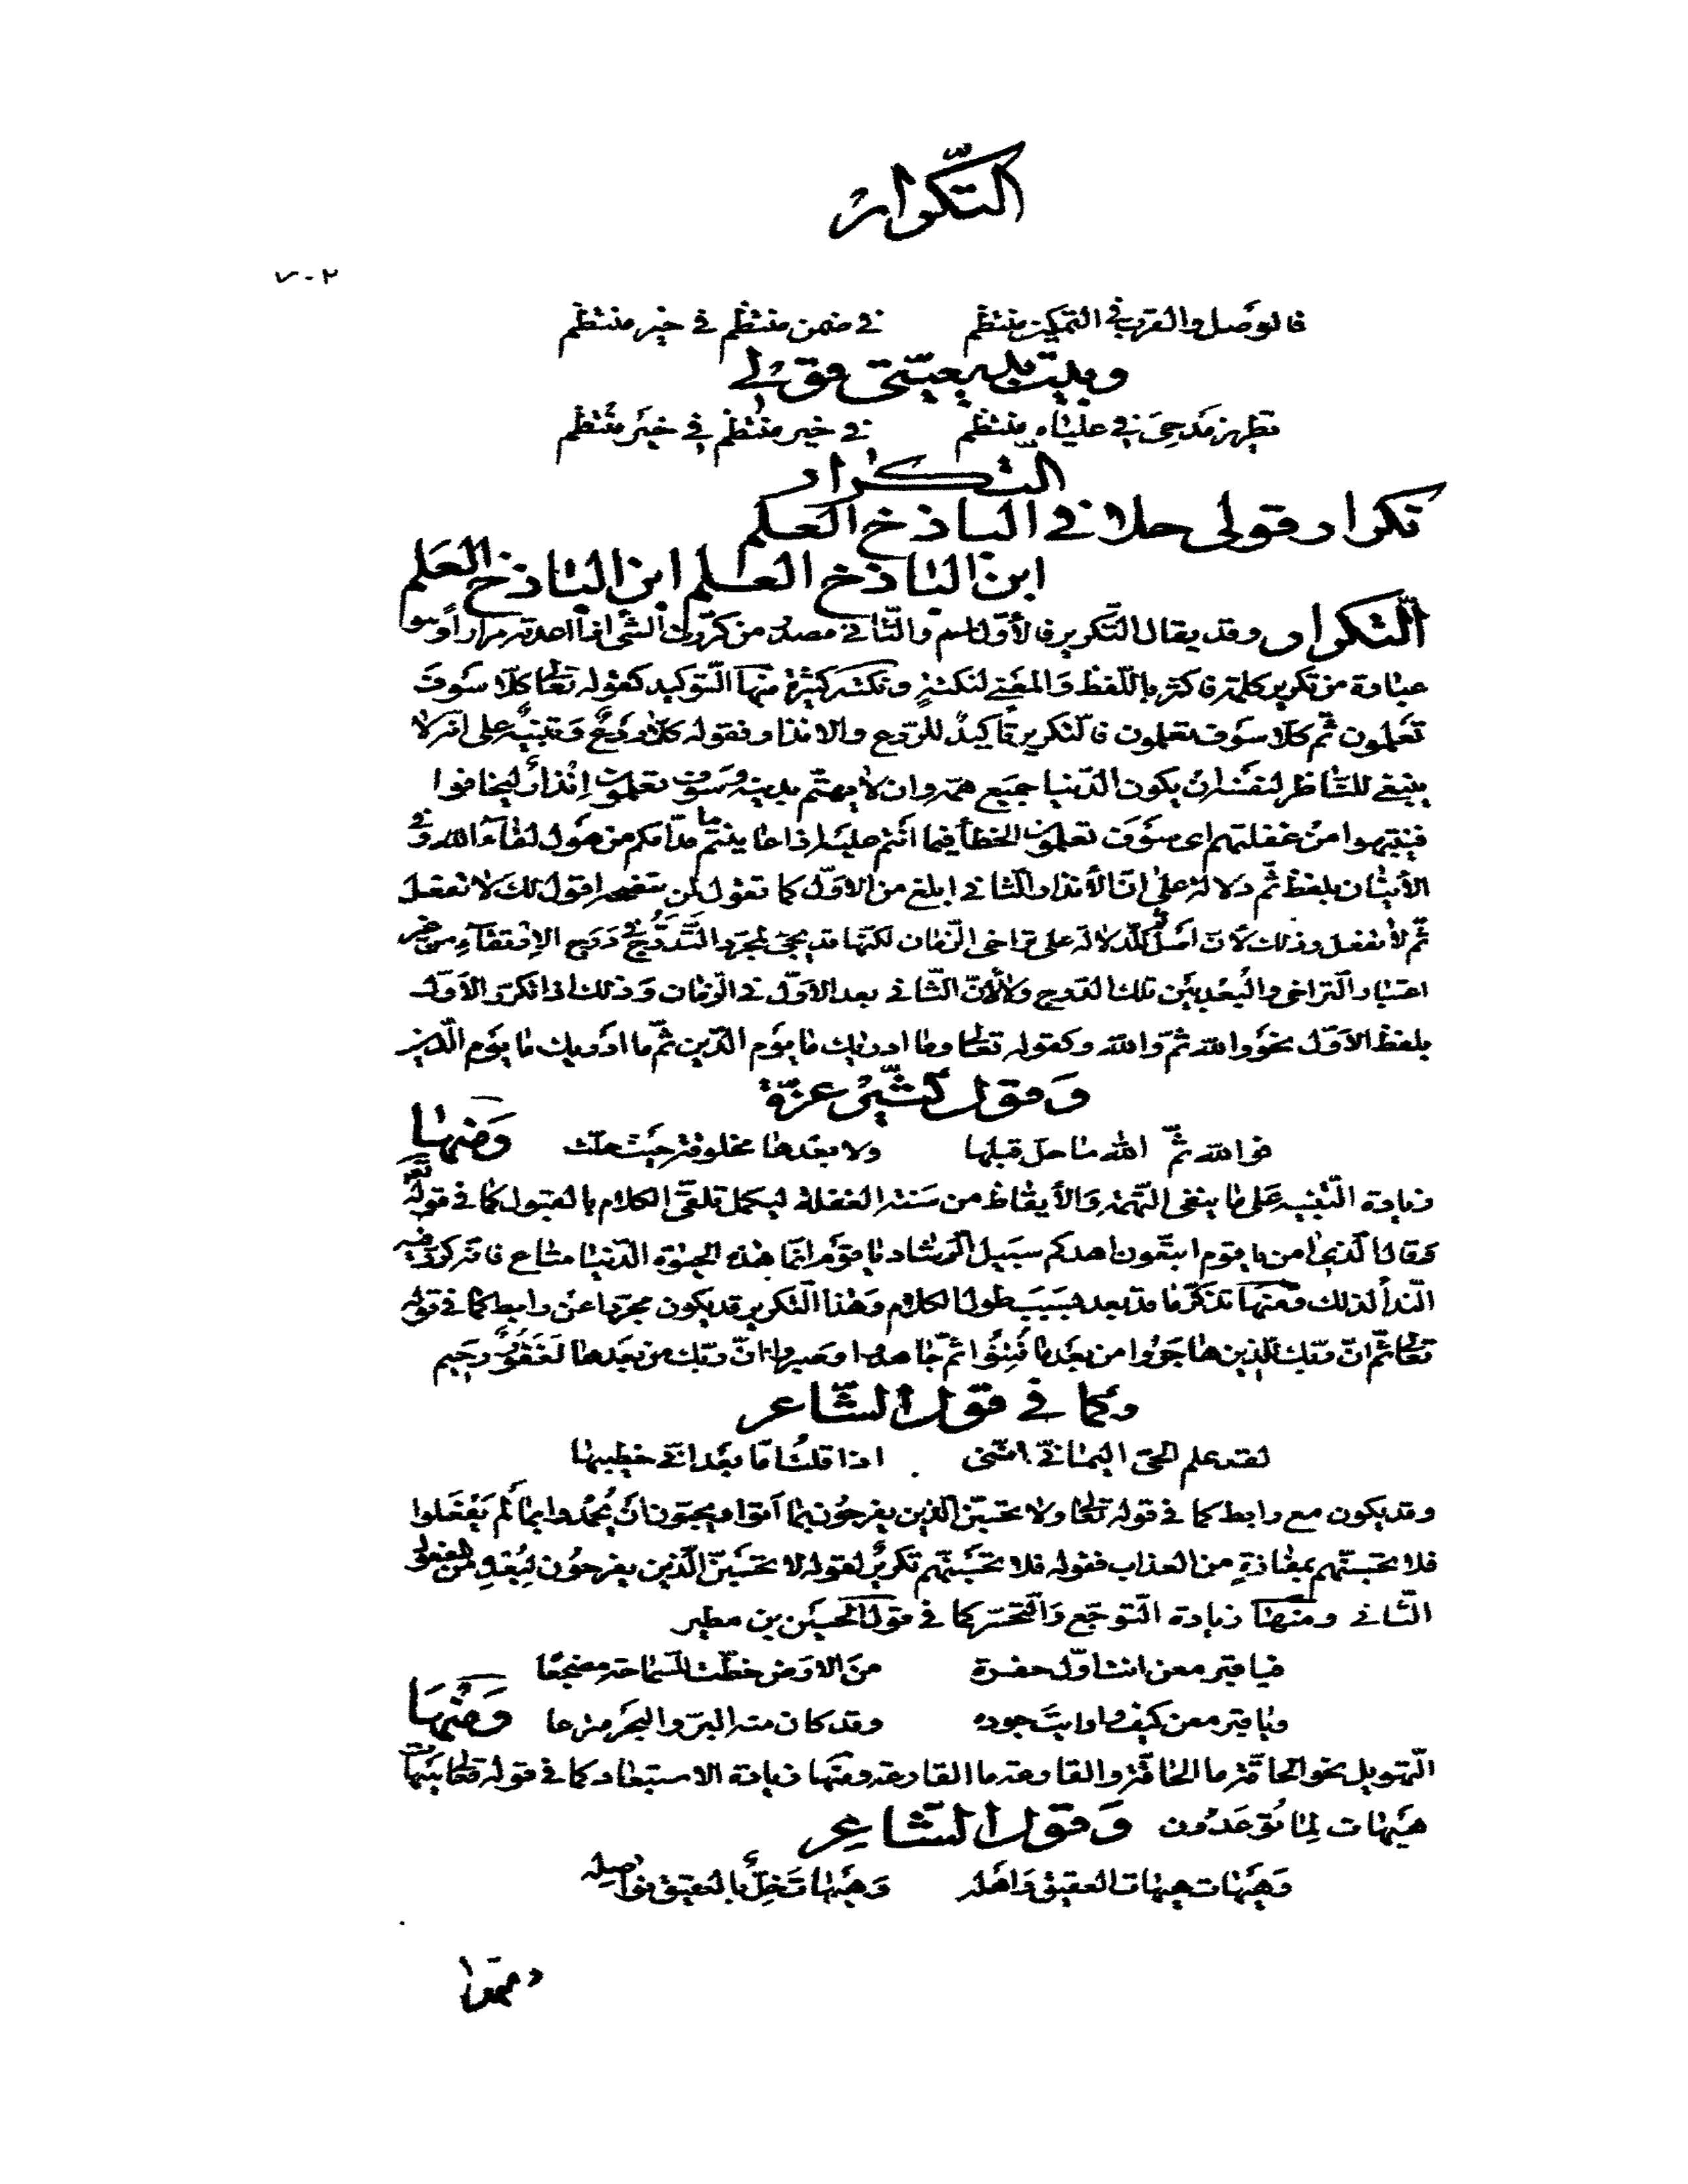 التكرار
٧٠٢
فالوصل والقرب في التمكين منتظم في ضمن منتظم في خير منتظم
وبيت بديعيتي قولي
تطهز مدحي في علياء منتظم في خير منتظم في خير منتظم
التكرار
تكرار قولي حلا في الباذخ العلم
ابن الباذخ العلم ابن الباذخ العلم
التكرار وقد يقال التكرير فالأول اسم والثاني مصدر من كررت الشئ اذا اعدته مرارا وهو
عبارة من تكرير كلمة فاكثر باللفظ والمعنى لنكتة ونكته كثيرة منها التوكيد كقوله تعالى كلا سوف
تعلمون ثم كلا سوف تعلمون فالتكرير تأكيد للردع والانذار فقوله كلا ردع وتنبيه على انه لا
ينبغي للناظر لنفسه ان يكون الدنيا جميع همه وان لا يهتم بدينه وسوف تعلمون إنذار ليخافوا
فينتبهوا من غفلتهم اى سوف تعلمون الخطأ فيما انتم عليه اذا عاينتم ما قدامكم من هول لقاء الله وفي
الأتيان بلفظ ثم دلالة على ان الأنذار الثاني ابلغ من الاول كما تقول لمن تنصحه اقول لك لا تفعل
ثم لا تفعل وذلك لأن اصل ثم للدلالة على تراخى الزمان لكنها قد تجئ لمجرد التدرج في درج الإرتقاء من غير
اعتبار التراخى والبعد بين تلك الدرج ولا لأن الثاني بعد الاول في الزمان وذلك اذا تكرر الاول
بلفظ الاول نحو والله ثم والله وكقوله تعالى وما ادريك ما يوم الدين ثم ما ادريك ما يوم الدين
وقول كثير عزة
فوالله ثم الله ما حل قبلها ولا بعدها مخلوقة حيث حلت ومنها
زيادة التنبيه على ما ينفى التهمة والأيقاظ من سنة الغفلة ليكمل تلقى الكلام بالقبول كما في قوله تعالى
وقال الذي امن يا قوم اتبعون اهدكم سبيل الرشاد يا قوم انما هذه الحيوة الدنيا متاع فانه كرر فيه
الندأ لذلك ومنها تذكر ما قد بعد بسبب طول الكلام وهذا التكرير قد يكون مجردا عن رابط كما في قوله
تعالى ثم ان ربك للذين هاجروا من بعد ما فتنوا ثم جاهدوا وصبروا ان ربك من بعدها لغفور رحيم
وكما في قول الشاعر
لقد علم الحى اليمانى انني اذا قلت اما بعد انى خطيبها
وقد يكون مع رابط كما في قوله تعالى ولا تحسبن الذين يفرحون بما اتوا ويحبون ان يحمدوا بما لم يفعلوا
فلا تحسبنهم بمفازة من العذاب فقوله فلا تحسبنهم تكرير لقوله لا تحسبن الذين يفرحون لبعده من المفعول
الثاني ومنها زيادة التوجع والتحسر كما في قول الحسين بن مطير
فيا قبر معن انت اول حفرة من الارض خطت للسماحة مضجعا
ويا قبر معن كيف واريت جوده وقد كان منه البر والبحر مترعا ومنها
التهويل نحو الحاقة ما الحاقة والقارعة ما القارعة ومنها زيادة الاستبعاد كما في قوله تعالى هيهات
هيهات لما توعدون وقول الشاعر
وهيهات هيهات العقيق واهله وهيهات خل بالعقيق نواصله